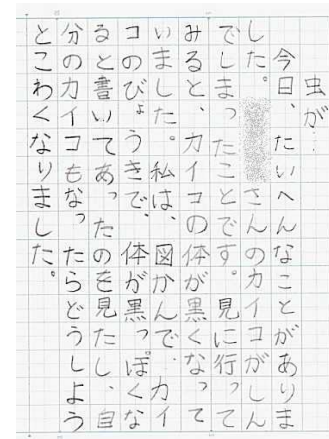 虫が…
今日、たいへんなことがありま
した。さんのカイコがしん
でしまったことです。見に行って
みると、カイコの体が黒くなって
いました。私は、図かんで、カイ
コのびょうきで、体が黒っぽくな
ると書いてあったのを見たし、自
分のカイコもなったらどうしよう
とこわくなりました。